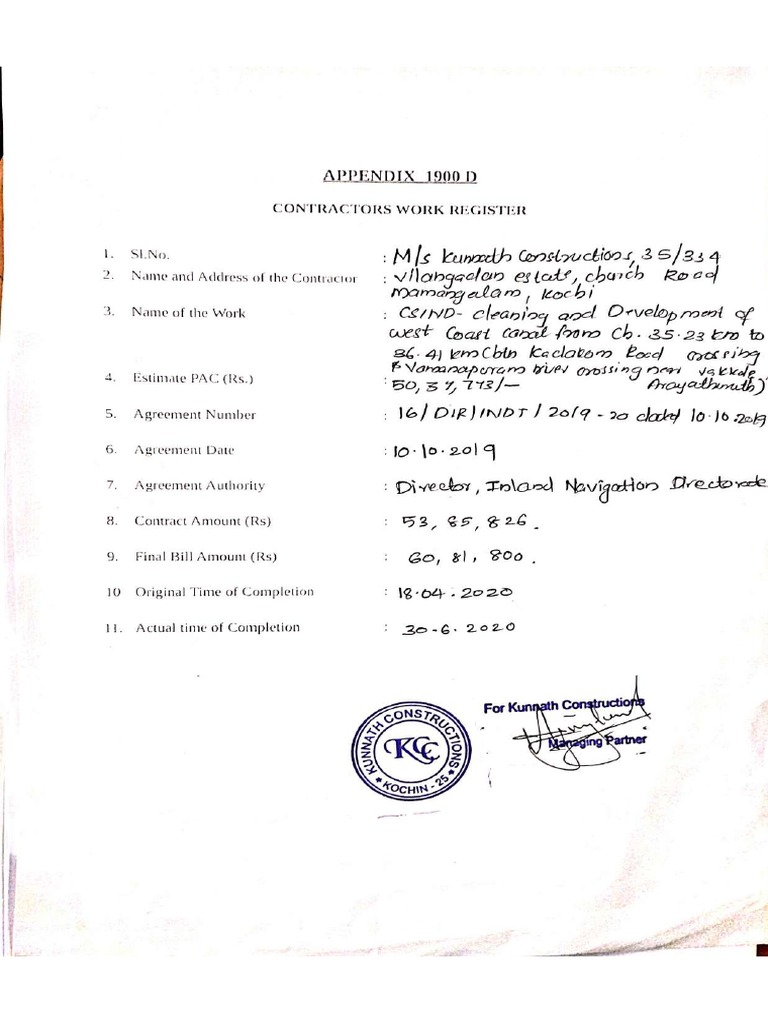 APPENDIX 1900 D
CONTRACTORS WORK REGISTER
1. Sl.No. : M/s Kunnath Constructions, 35/334
2. Name and Address of the Contractor : Vilangadan estate, church Road
Mamangalam, Kochi
3. Name of the Work : CSIND- cleaning and Development of
West Coast canal from Ch. 35.23 km to
36.41 km (btn Kadakom Road crossing
& Vamanapuram river crossing near
4. Estimate PAC (Rs.) : 50,37,773/-
5. Agreement Number : 16/DIR/INDT/2019-20 dated 10.10.2019
6. Agreement Date : 10.10.2019
7. Agreement Authority : Director, Inland Navigation Directorate
8. Contract Amount (Rs) : 53,85,826.
9. Final Bill Amount (Rs) : 60,81,800.
10 Original Time of Completion : 18.04.2020
11. Actual time of Completion : 30-6.2020
For Kunnath Constructions
Managing Partner
KUNNATH CONSTRUCTIONS
KCC
* KOCHIN - 25 *